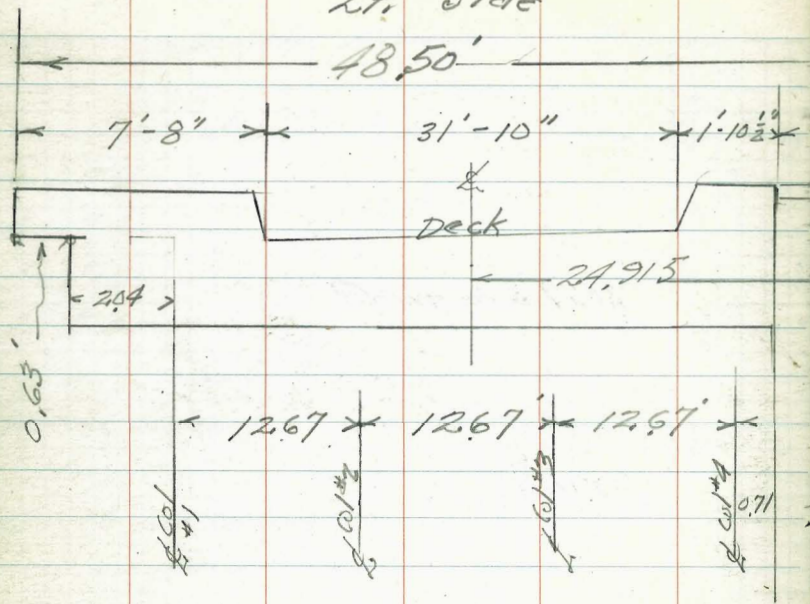 Lt. Side
48.50'
7'-8" 31'-10" 1'-10½"
℄
Deck
24.915
2.04
0.63'
12.67 12.67' 12.67'
℄ Col #1
℄ Col #2
℄ Col #3
℄ Col #4
0.71